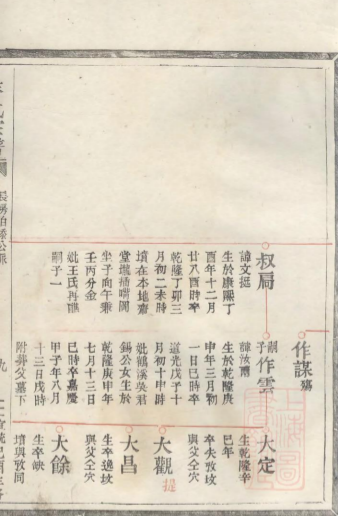 作謀
叔扃
諱文挺
生於康熙丁
酉年十二月
廿八酉時卒
乾隆丁卯三
月初二未時
墳在本地齋
堂壠
坐子向午兼
壬丙分金
妣王氏再醮
嗣子一
嗣子作雲
諱汝爾
生於乾隆庚
申年三月初
一日巳時卒
道光戊子十
月初十申時
妣鵝溪吳君
錫公女生於
乾隆庚申年
七月十三日
巳時卒嘉慶
甲子年八月
十三日戌時
附葬父墓下
大定
生乾隆辛
巳年
卒失攷墳
與父仝穴
大觀
大昌
生卒
與父仝穴
大餘
生卒缺
墳與攷同
長房伯
公派
九